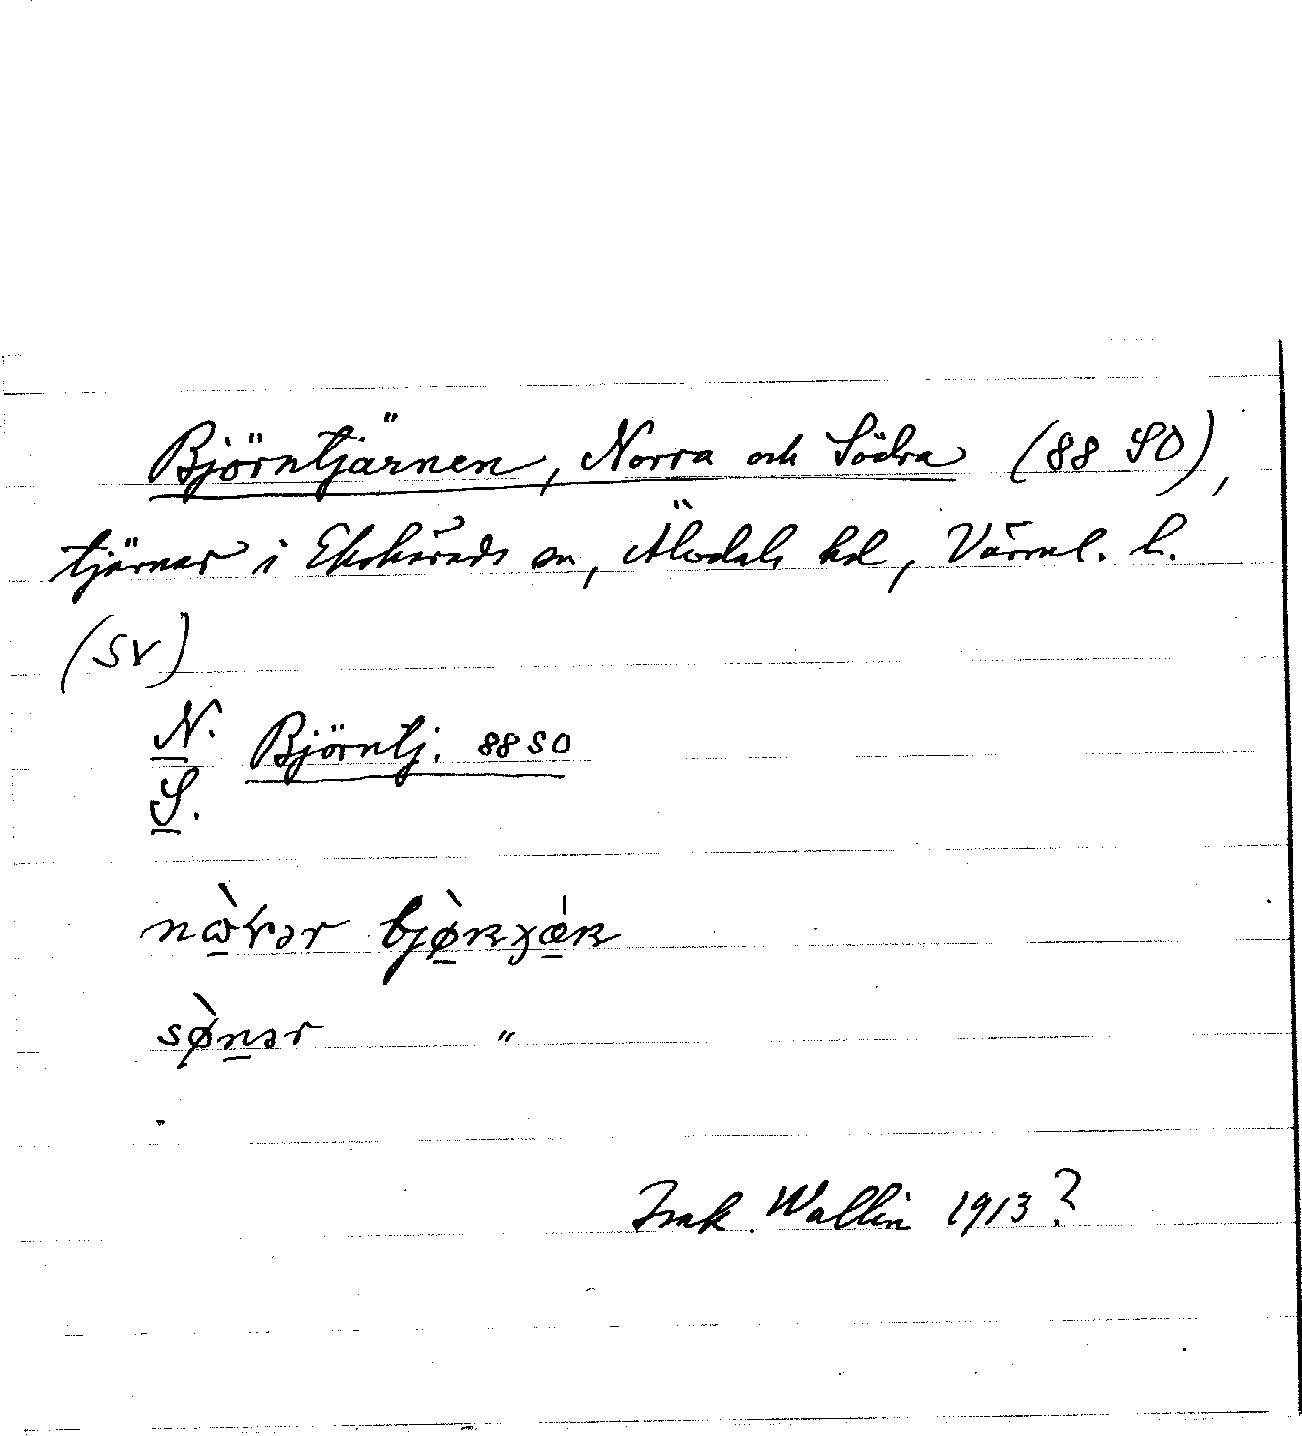 Björntjärnen, Norra och Södra (88 SO),
tjärnar i Ekshärads sn, Älvdals hd, Värml. l.
(SV)
N. Björntj. 88 SO
S.
"
Isak Wallin 1913?